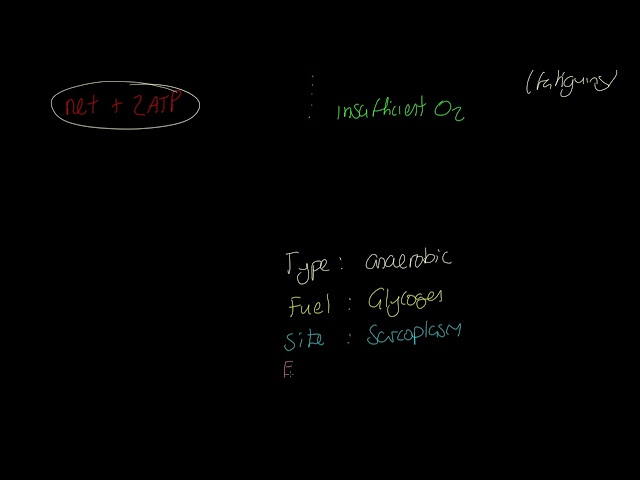 (fatiguing)
net + 2ATP
insufficient O2
Type : anaerobic
Fuel : Glycogen
Site : Sarcoplasm
E